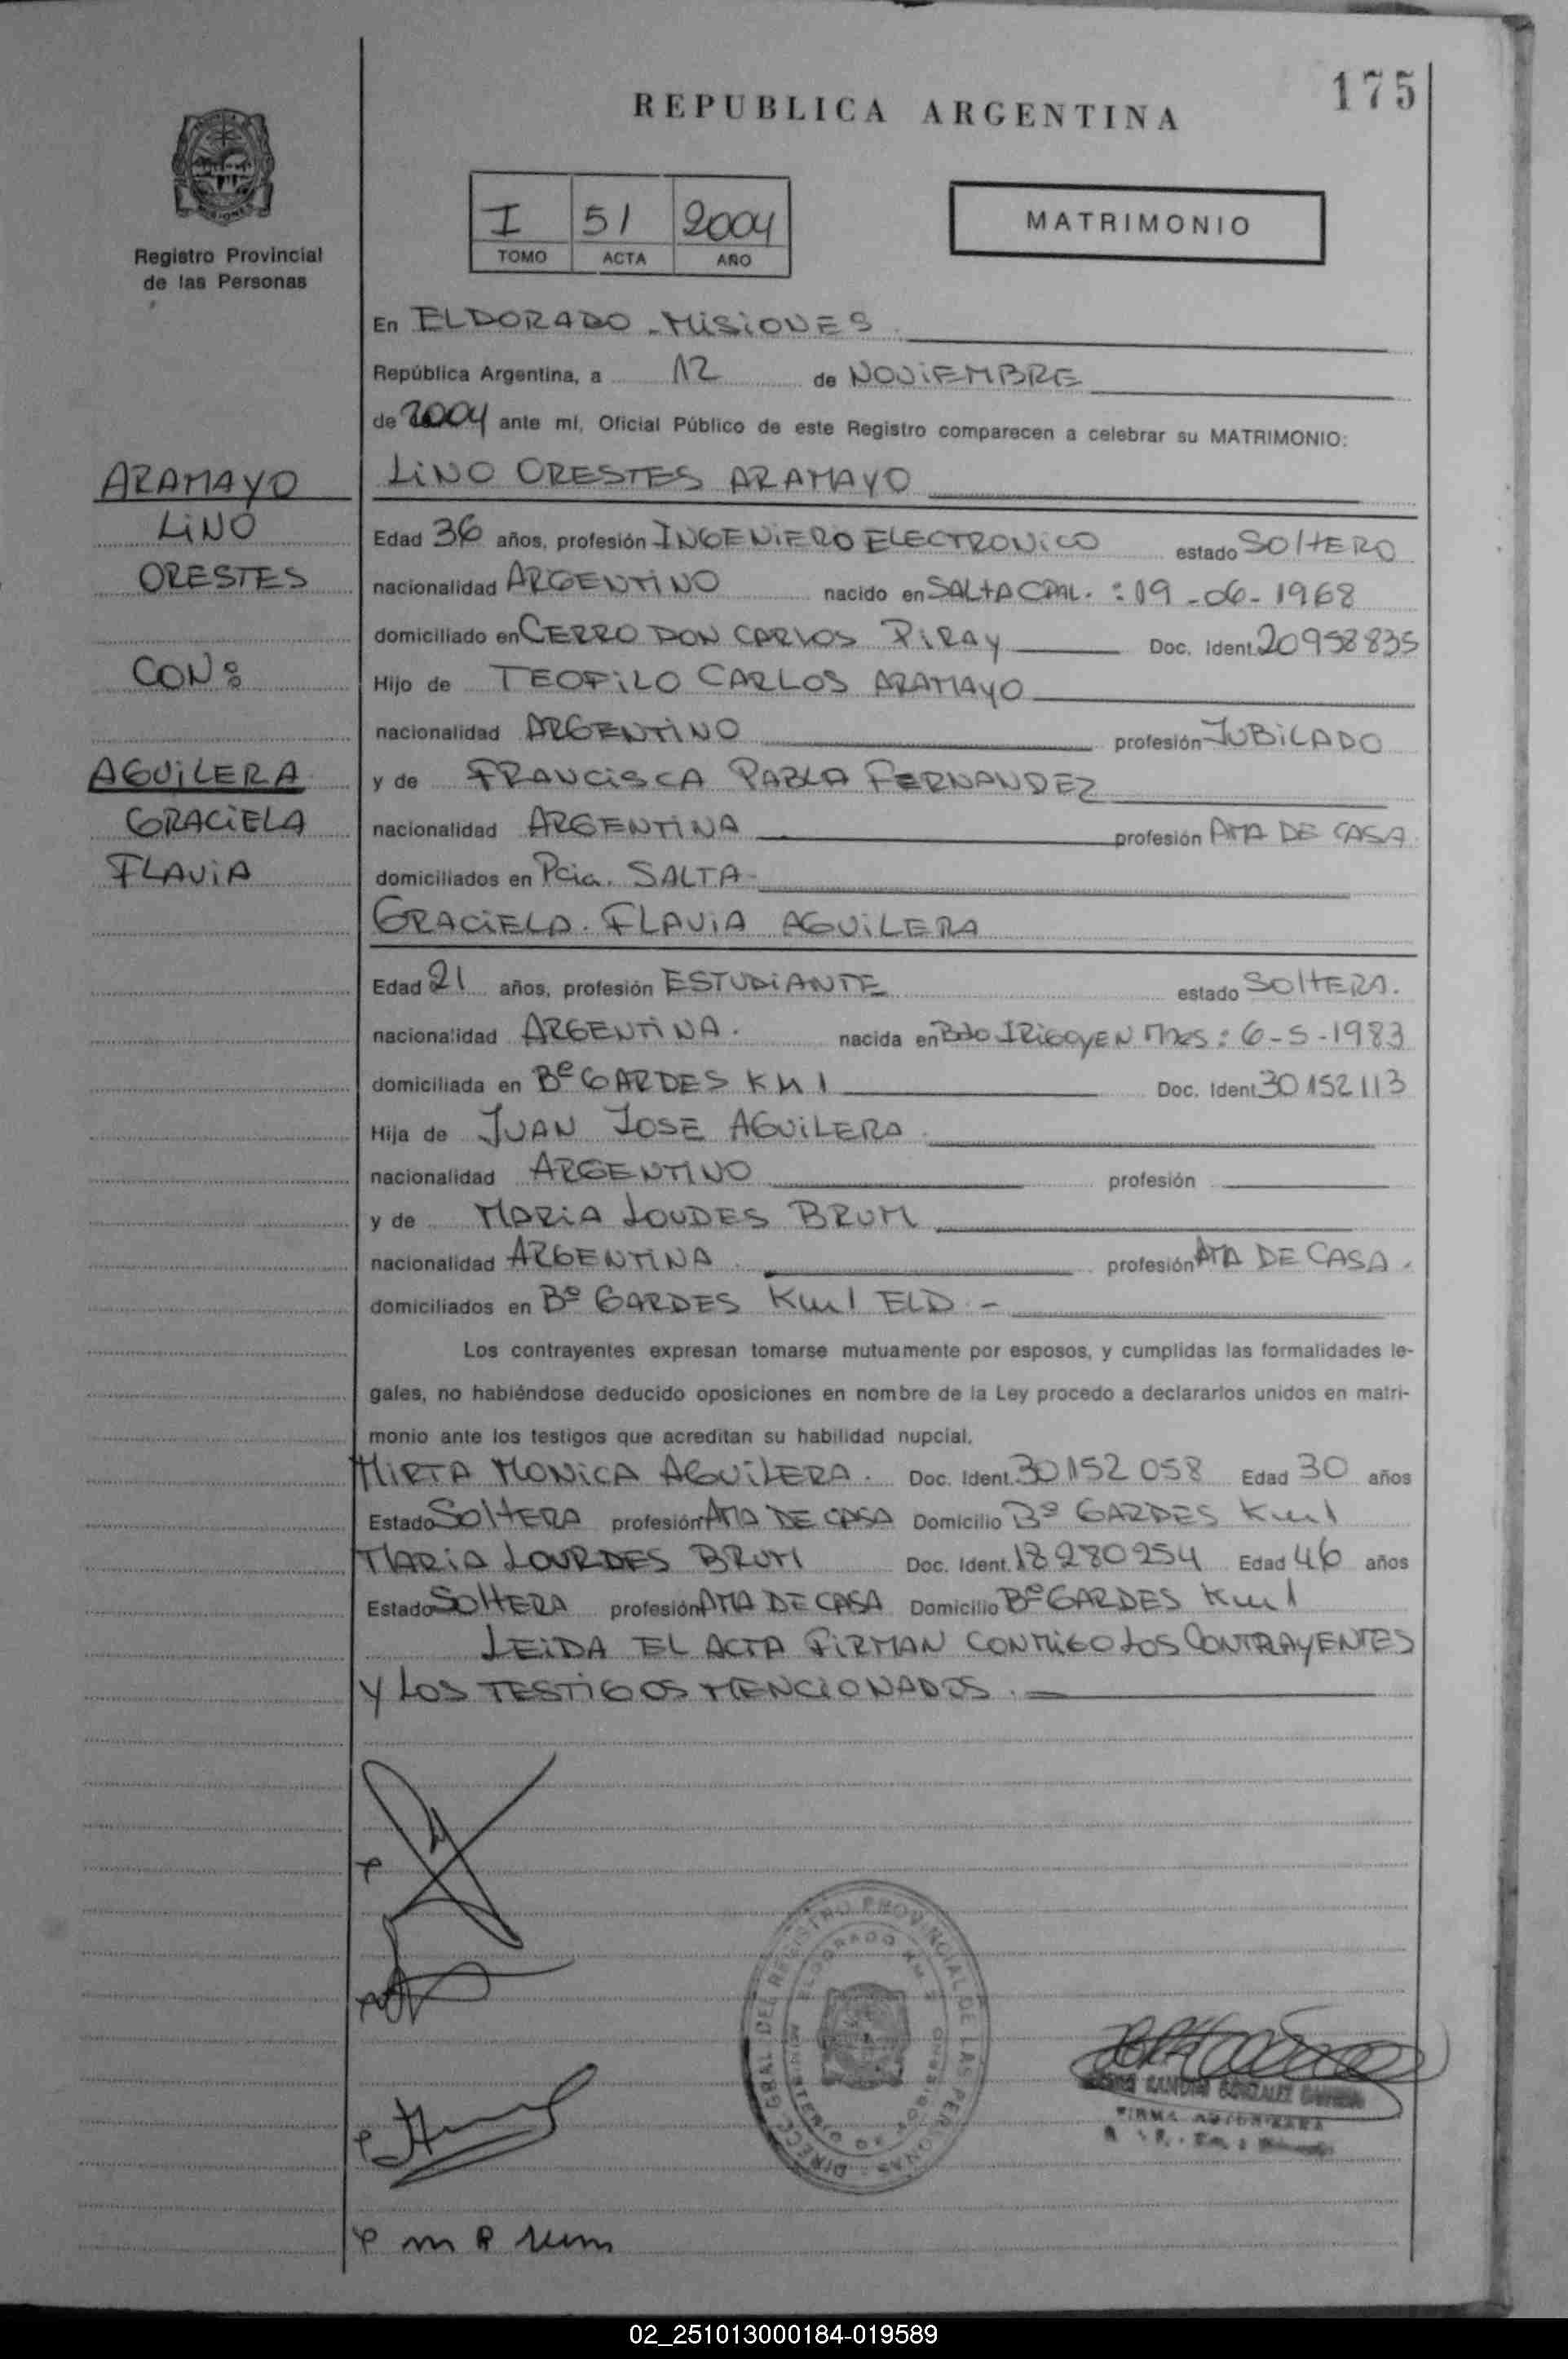 175
REPUBLICA ARGENTINA
Registro Provincial
de las Personas
I 51 2004
TOMO ACTA AÑO
MATRIMONIO
En ELDORADO - MISIONES
República Argentina, a 12 de NOVIEMBRE
de 2004 ante mí, Oficial Público de este Registro comparecen a celebrar su MATRIMONIO:
ARAMAYO
LINO
ORESTES
CON:
AGUILERA
GRACIELA
FLAVIA
LINO ORESTES ARAMAYO
Edad 36 años, profesión INGENIERO ELECTRONICO estado SOLTERO
nacionalidad ARGENTINO nacido en SALTA CPAL. : 19-06-1968
domiciliado en CERRO DON CARLOS PIRAY Doc. Ident. 20958835
Hijo de TEOFILO CARLOS ARAMAYO
nacionalidad ARGENTINO profesión JUBILADO
y de FRANCISCA PABLA FERNANDEZ
nacionalidad ARGENTINA profesión AMA DE CASA
domiciliados en Pcia. SALTA-
GRACIELA. FLAVIA AGUILERA
Edad 21 años, profesión ESTUDIANTE estado SOLTERA.
nacionalidad ARGENTINA. nacida en Bdo IRIGOYEN Mnes: 6-5-1983
domiciliada en Bº GARDES KM 1 Doc. Ident. 30152113
Hija de JUAN JOSE AGUILERA
nacionalidad ARGENTINO profesión
y de MARIA LOUDES BRUM
nacionalidad ARGENTINA profesión AMA DE CASA.
domiciliados en Bº GARDES Km 1 ELD.-
Los contrayentes expresan tomarse mutuamente por esposos, y cumplidas las formalidades le-
gales, no habiéndose deducido oposiciones en nombre de la Ley procedo a declararlos unidos en matri-
monio ante los testigos que acreditan su habilidad nupcial.
MIRTA MONICA AGUILERA. Doc. Ident. 30152058 Edad 30 años
Estado SOLTERA profesión AMA DE CASA Domicilio Bº GARDES Km 1
MARIA LOURDES BRUM Doc. Ident. 18280254 Edad 46 años
Estado SOLTERA profesión AMA DE CASA Domicilio Bº GARDES Km 1
LEIDA EL ACTA FIRMAN CONMIGO LOS CONTRAYENTES
Y LOS TESTIGOS MENCIONADOS.
DIRECC. GRAL. DEL REGISTRO PROVINCIAL DE LAS PERSONAS
ELDORADO KM. 2
GONZALEZ
FIRMA AUTORIZADA
02_251013000184-019589